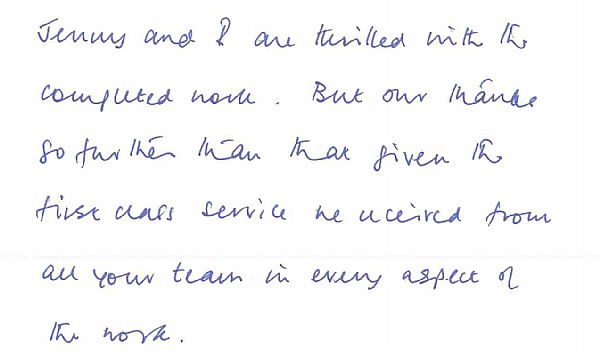 Jenny and I are thrilled with the
completed work. But our thanks
go further than that given the
first class service we received from
all your team in every aspect of
the work.